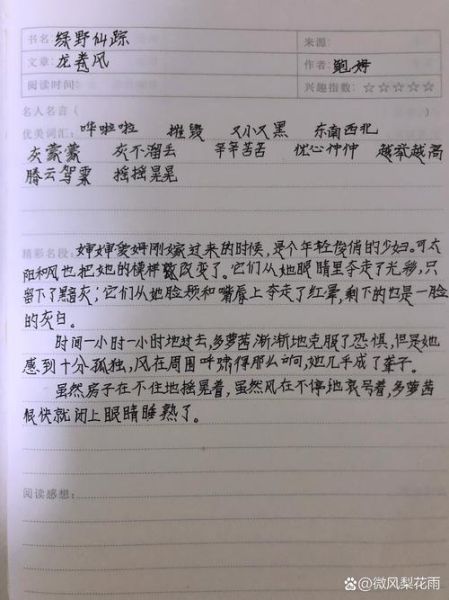 书名：绿野仙踪 来源：
文章：龙卷风 作者：鲍姆
阅读时间： 兴趣指数：☆☆☆☆☆
名人名言（
优美词汇：哗啦啦 摧毁 又小又黑 东南西北
灰蒙蒙 灰不溜丢 辛辛苦苦 忧心忡忡 越举越高
腾云驾雾 摇摇晃晃
精彩名段：婶婶爱姆刚嫁过来的时候，是个年轻俊俏的少妇。可太
阳和风也把她的模样改变了。它们从她眼睛里夺走了光彩，只
留下了暗灰；它们从她脸颊和嘴唇上夺走了红晕，剩下的也是一脸
的灰白。
时间一小时一小时地过去，多萝茜渐渐地克服了恐惧，但是她
感到十分孤独，风在周围呼啸得那么响，她几乎成了聋子。
虽然房子在不住地摇晃着，虽然风在不停地哀号着，多萝茜
很快就闭上眼睛睡熟了。
阅读感想：
百家号@微风梨花雨